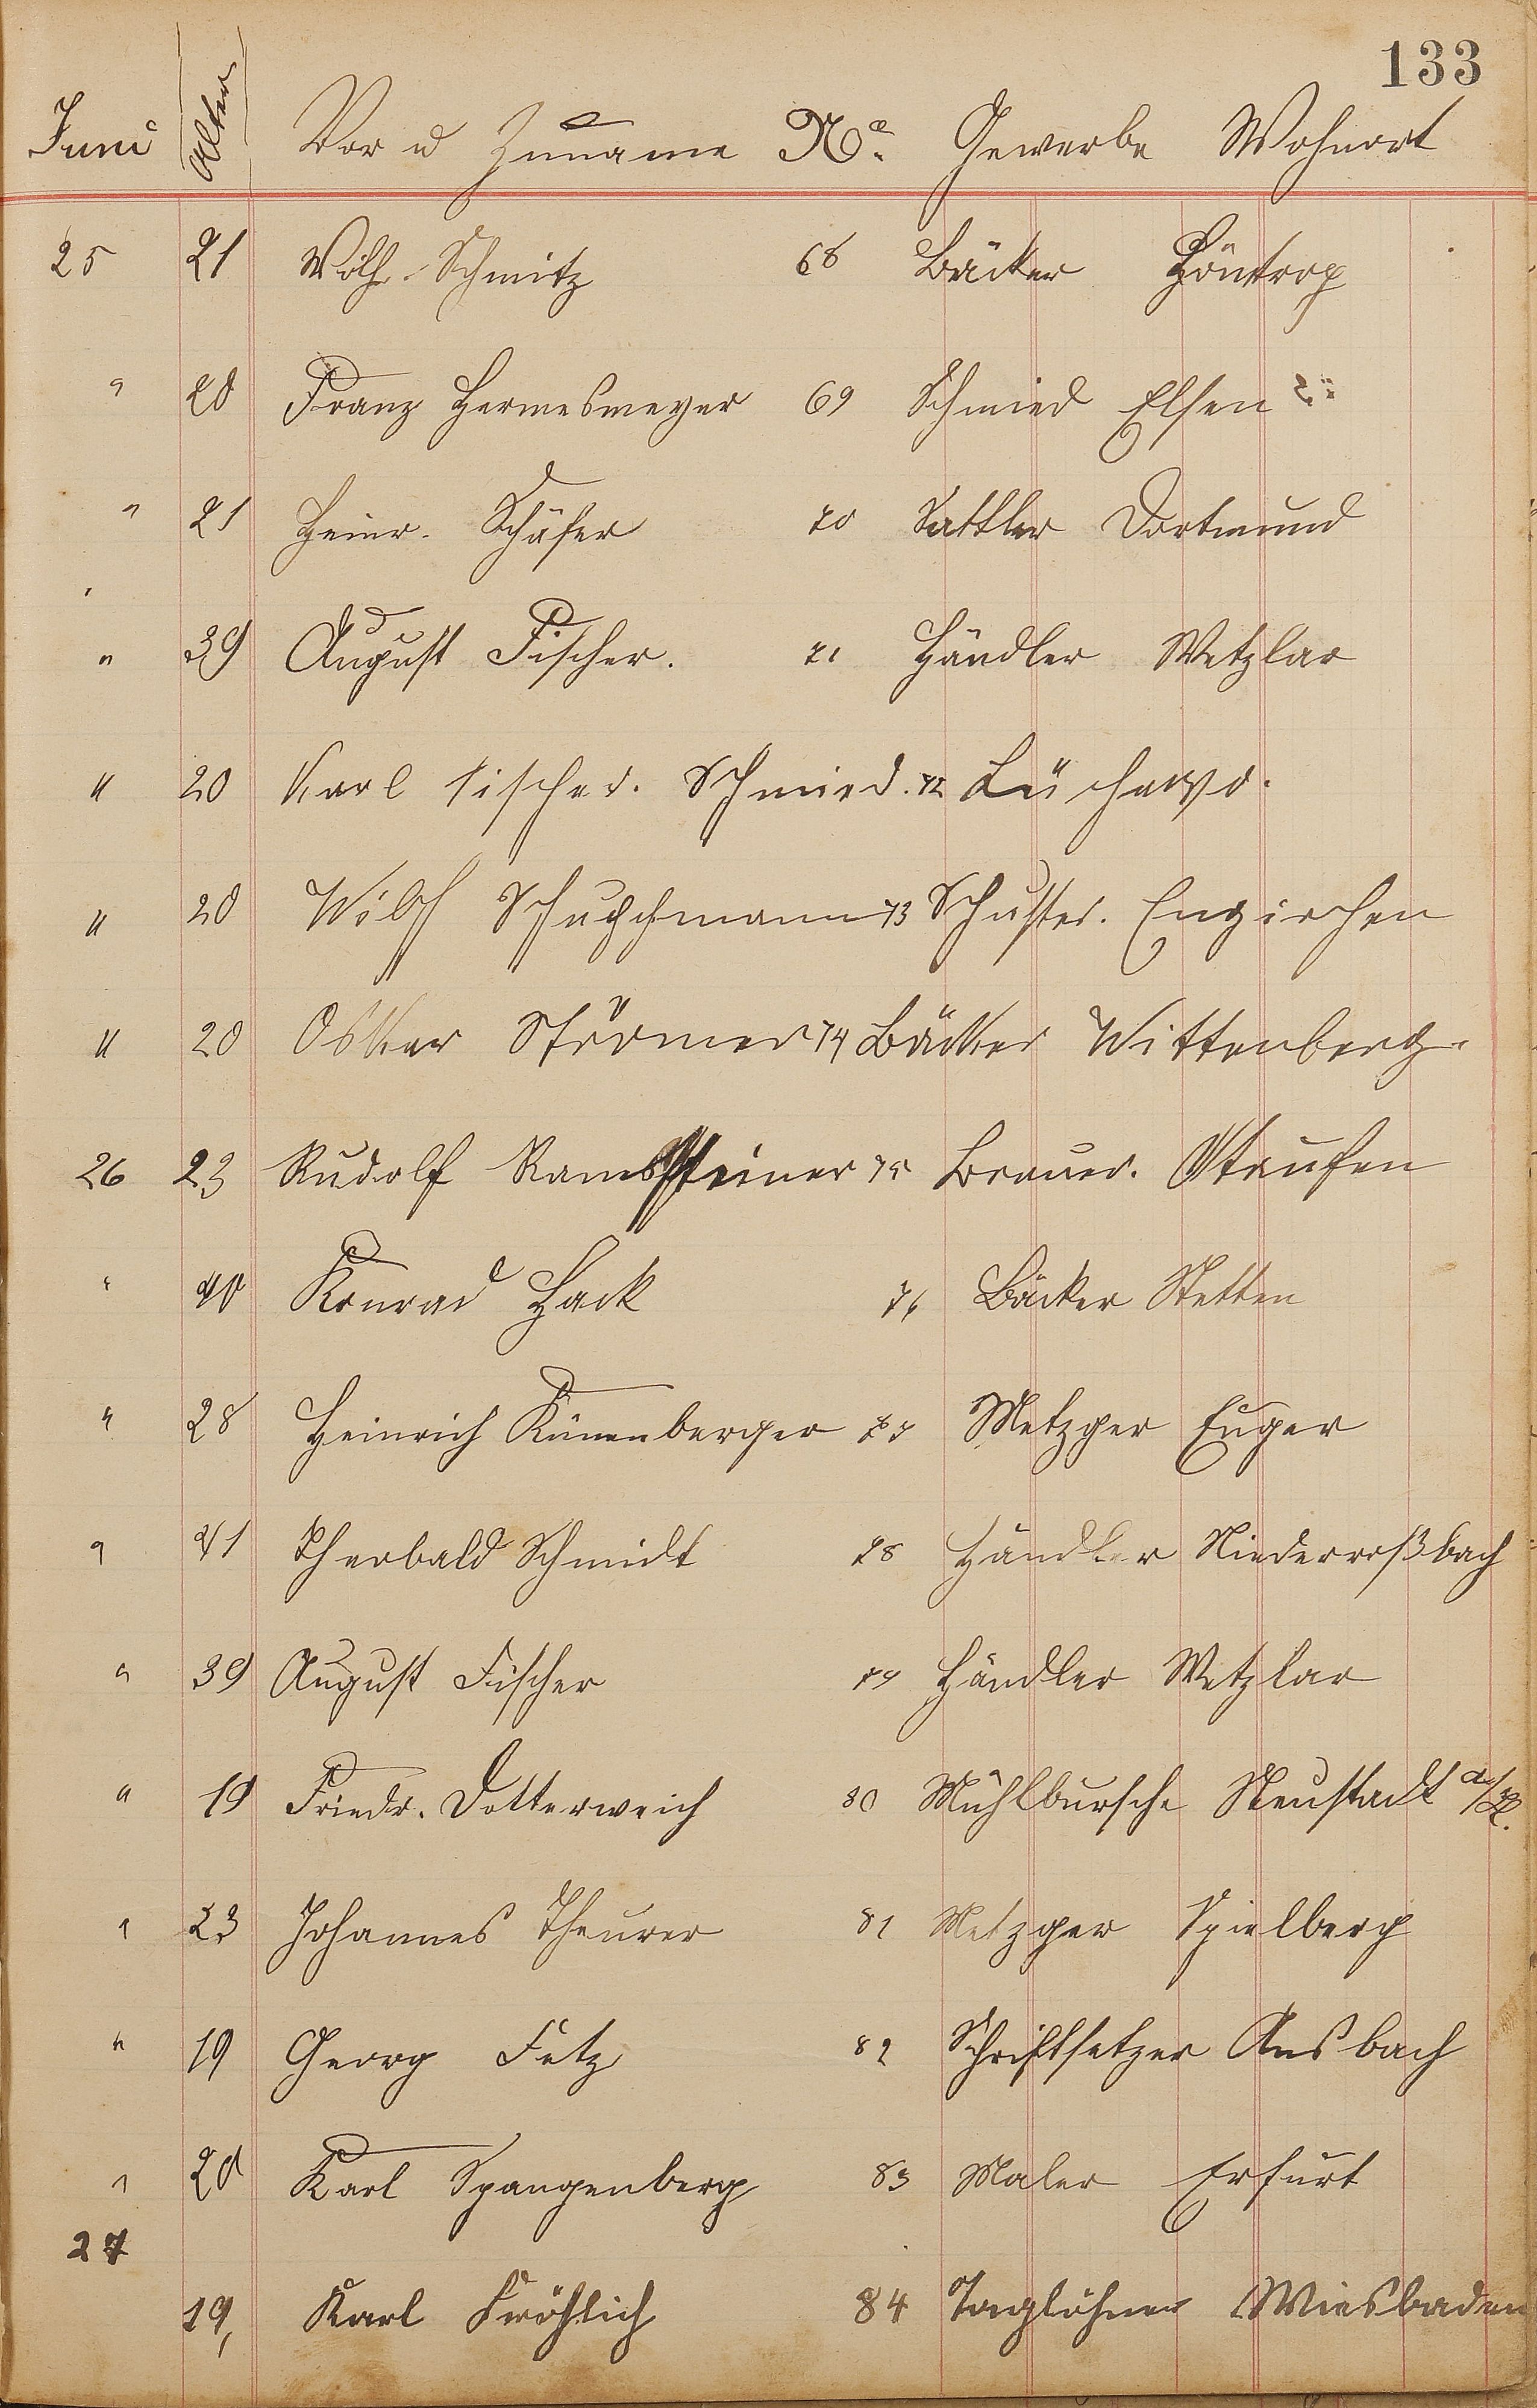 133
Juni Alter Vor u Zuname No. Gewerbe Wohnort
25 21 Wilh. Schmitz 68 Bäcker Höntrop
" 20 Franz Hermesmeyer 69 Schmied Elsen
" 21 Heinr. Schäfer 70 Sattler Dortmund
" 39 August Fischer. 71 Händler Wetzlar
" 20 Karl Fischer. Schmied. 72
" 20 Wilh Schuchmann 73 Schuster.
" 20 Oskar Störmer 74 Bäcker Wittenberg.
26 23 Rudolf Ramsteiner 75 Brauer. Staufen
" 40 Konrad Hack 76 Bäcker Stetten
" 28 Heinrich Künenberger 77 Metzger Enger
" 41 Theobald Schmidt 78 Händler Niederroßbach
" 39 August Fischer 79 Händler Wetzlar
" 19 Friedr. Dotterweich 80 Mühlbursche Neustadt
" 23 Johannes Theurer 81 Metzger Spielberg
" 19 Georg Fetz 82 Schriftsetzer Ansbach
" 20 Karl Spangenberg 83 Maler Erfurt
27
19, Karl Fröhlich 84 Taglöhner Wiesbaden